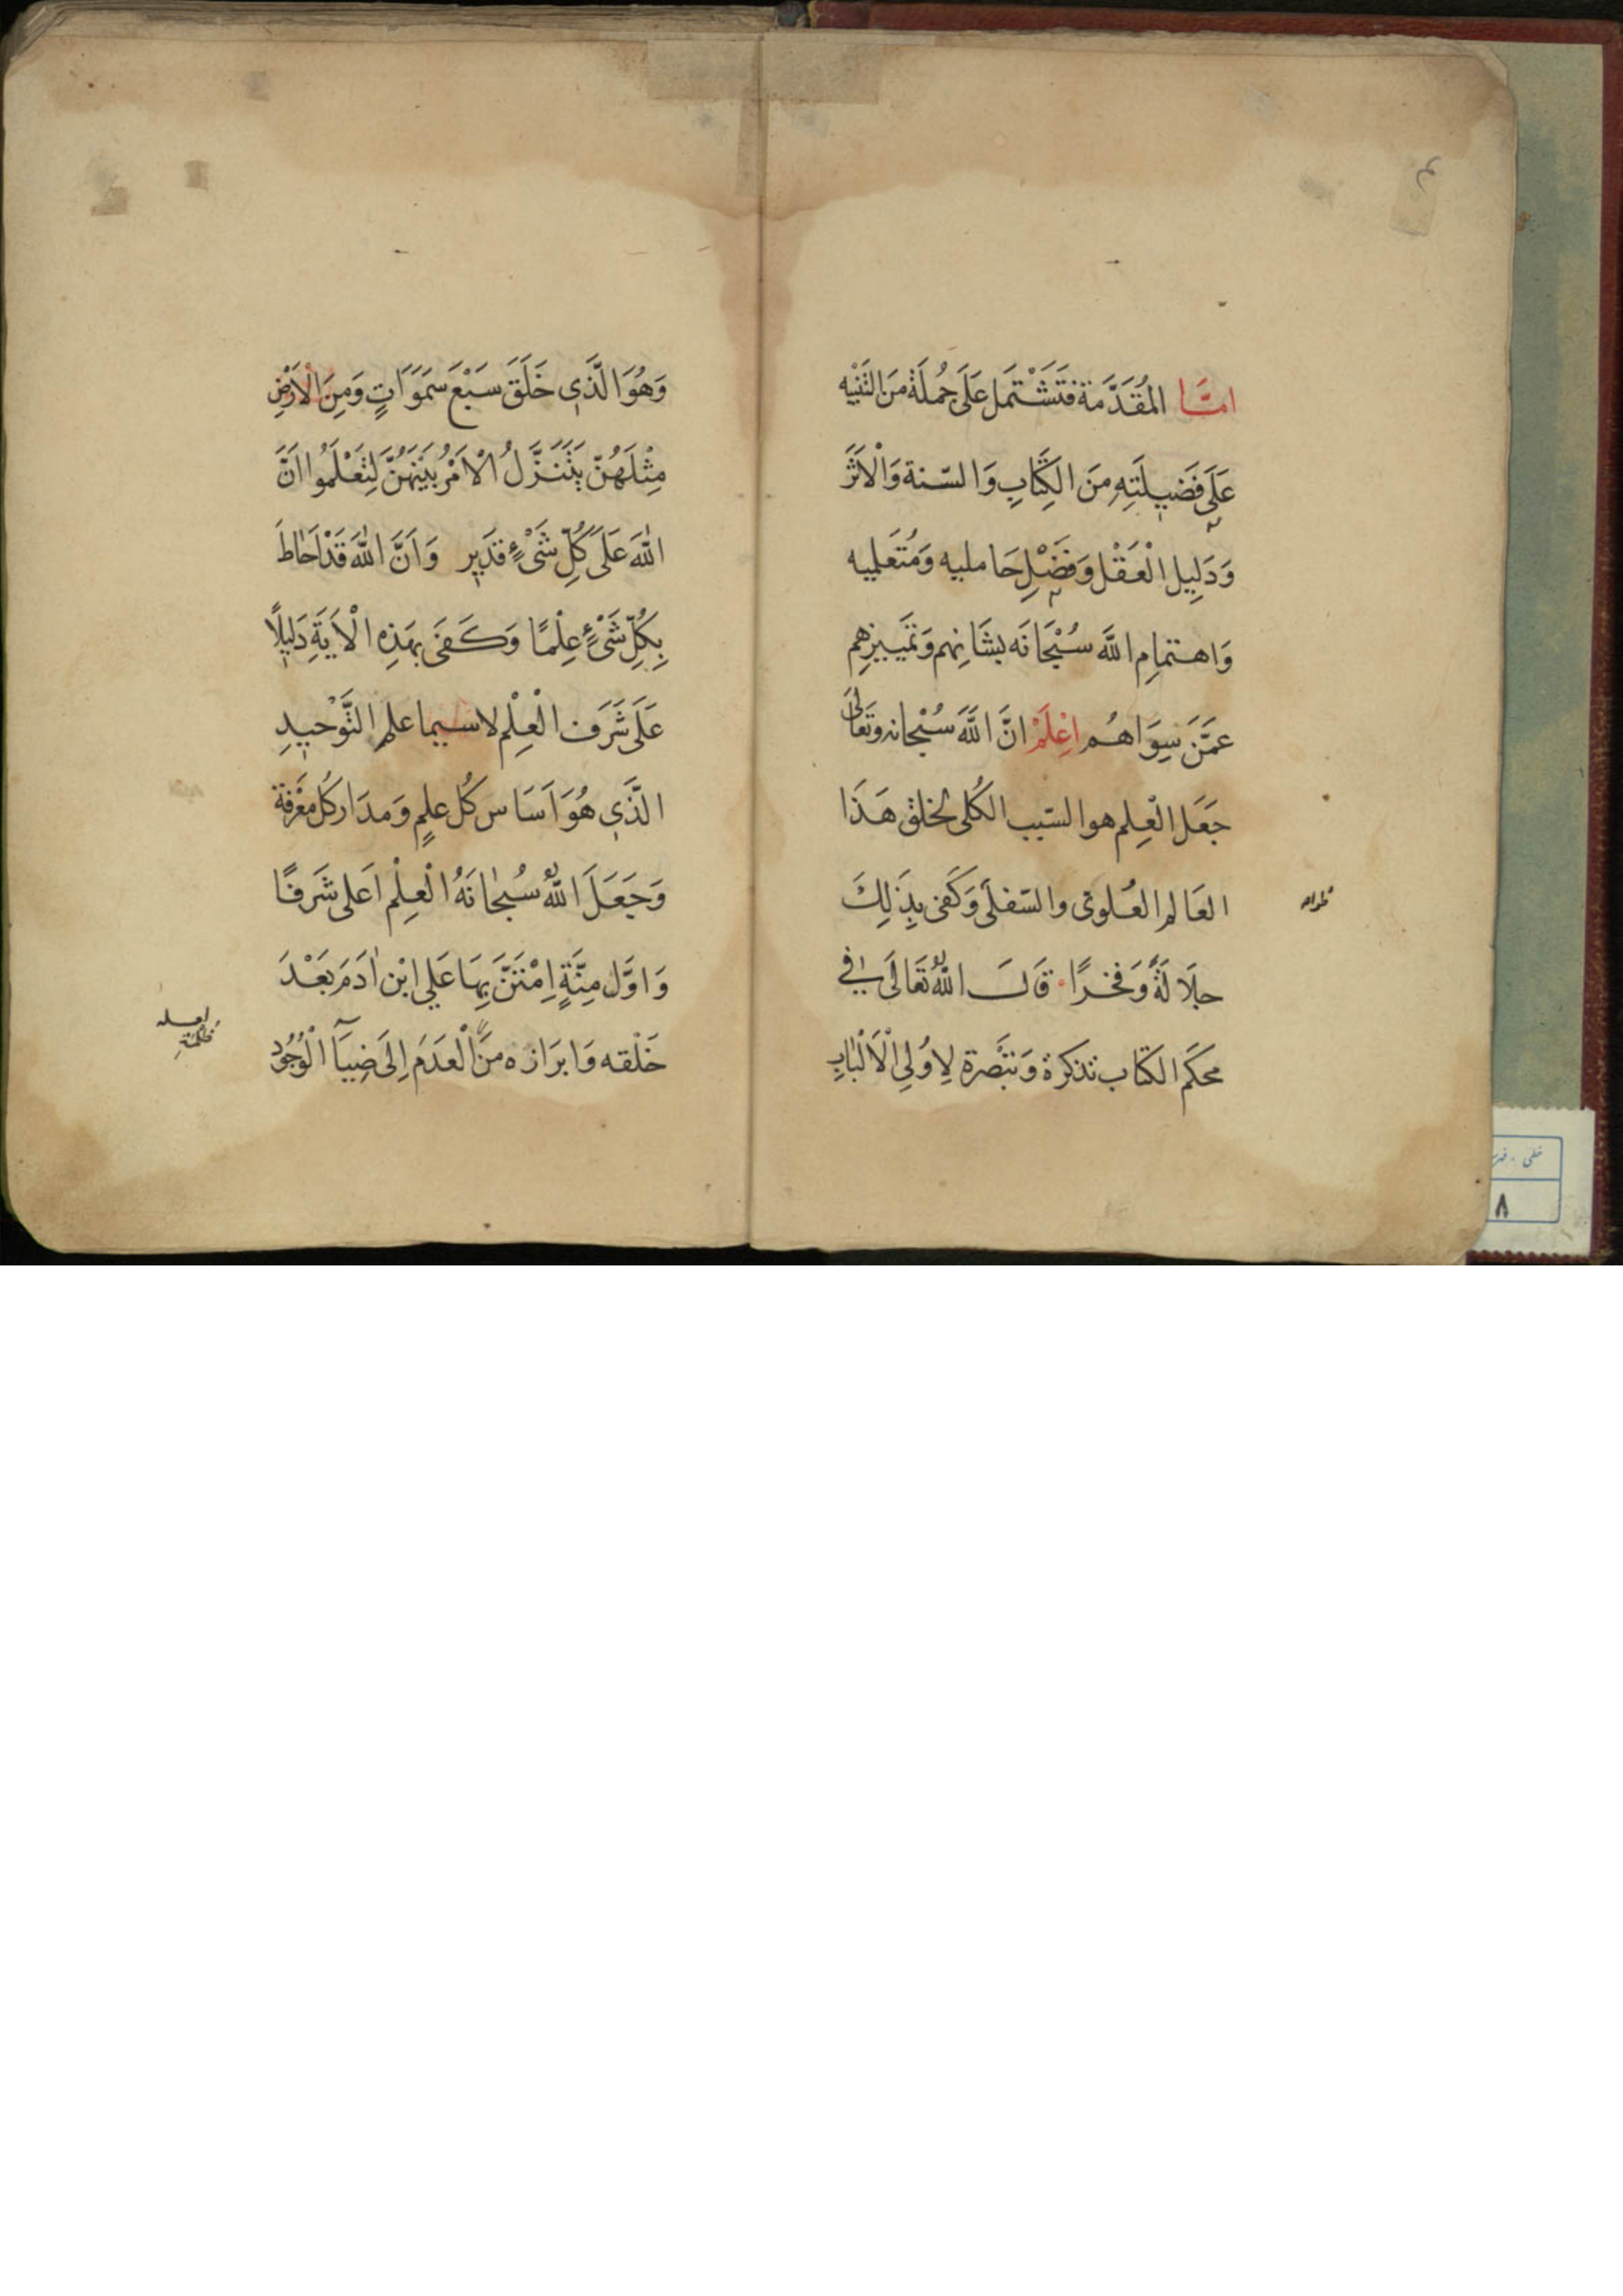 امَّا المُقَدَّمَة فَتَشْتَمل عَلَى جُملَة مَن التَنْبْيه
عَلَى فَضيلَتِهِ مِنَ الكِتَابِ وَالسّنة وَالْاَثَر
وَدَلِيل الْعَقْل وَفَضْلِ حَامليه وَمُتَعَلميه
وَاهتمامِ اللَّه سُبْحَانَه بشَانِهم وَتَمَييزهِم
عَمَّن سِوَاهُم اعْلَمْ انَّ اللَّهَ سُبْحانه وتَعَالَى
جَعَل الْعِلم هو السّبب الكُلى لخلق هَذَا
العَالم العُلوىّ والسّفلى وَكَفى بِذَلِكَ
جلَالَةً وَفخرًا قَالَ اللَّهُ تَعَالَى فى
محكَم الكتَاب تذكرة وَتبَصرة لِاوُلِى الْاَلْبَابِ
وَهُوَ الَّذى خَلَقَ سَبْعَ سَمَوَاتٍ وَمِنَ الْاَرْضِ
مِثْلَهُنّ يَتَنَزَّلُ الْاَمْرُ بَيْنَهُنَّ لِتَعْلَمُوا اَنَّ
اللّٰهَ عَلَى كُلّ شَىْءٍ قدَير وَاَنَّ اللّٰهَ قَدْ اَحَاطَ
بِكُلِّ شَىْءٍ عِلْمًا وَكَفَى بهَذِهِ الْاَيَةِ دَليلًا
عَلَى شَرَف الْعِلْم لا سيما علم التَّوْحيدِ
الَّذى هُوَ اَسَاس كُل علمٍ وَمدَار كُل معْرفَة
وَجَعَلَ اللّٰهُ سُبحٰانَهُ الْعِلْم اَعلى شَرَفًا
وَاوَّل مِنَّةٍ اِمْتَنَّ بِهَا عَلي ابْن اٰدَمَ بَعْدَ
خَلْقه وَابرَازه منَ الْعَدَمَ اِلَى ضِيَآ الْوُجُود
لعله
ظلمة